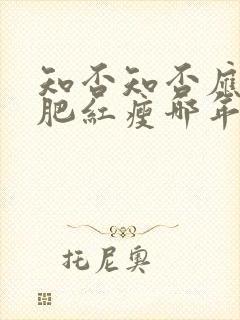 知否知否应
肥紅瘦那年
托尼奥